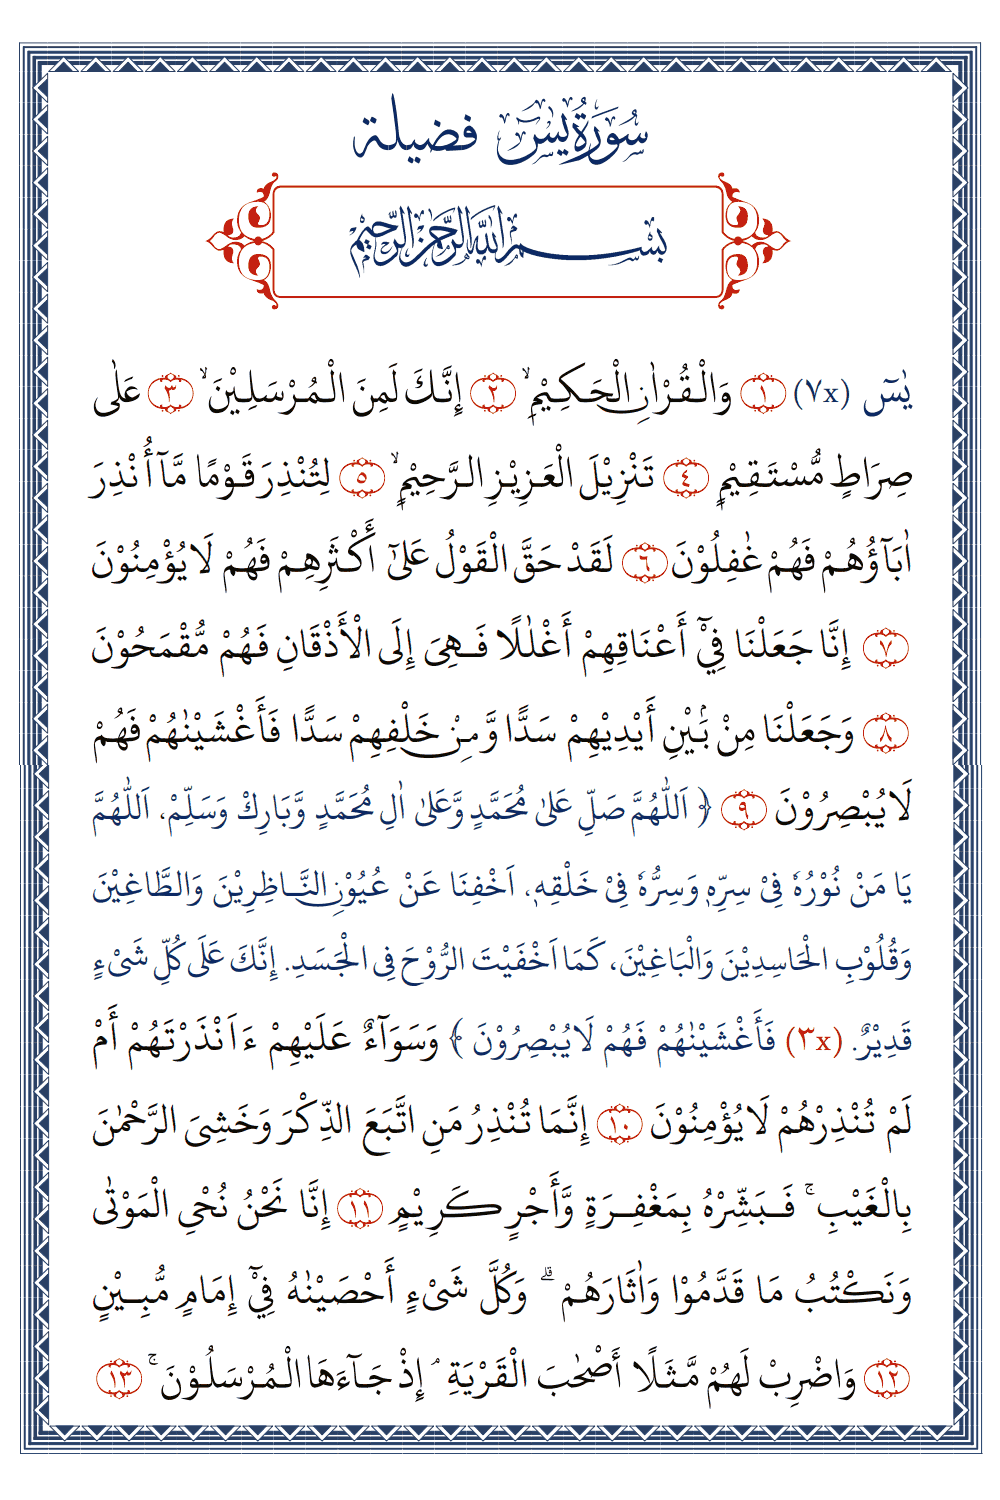 سُوْرَةُ يٰسٓ فضيلة
بِسْمِ اللّٰهِ الرَّحْمٰنِ الرَّحِيْمِ
يٰسٓ (٧x) ۝١ وَالْقُرْاٰنِ الْحَكِيْمِۙ ۝٢ إِنَّكَ لَمِنَ الْمُرْسَلِيْنَۙ ۝٣ عَلٰى
صِرَاطٍ مُّسْتَقِيْمٍ ۝٤ تَنْزِيْلَ الْعَزِيْزِ الرَّحِيْمِۙ ۝٥ لِتُنْذِرَ قَوْمًا مَّآ أُنْذِرَ
اٰبَآؤُهُمْ فَهُمْ غٰفِلُوْنَ ۝٦ لَقَدْ حَقَّ الْقَوْلُ عَلٰىٓ أَكْثَرِهِمْ فَهُمْ لَا يُؤْمِنُوْنَ
۝٧ إِنَّا جَعَلْنَا فِيْٓ أَعْنَاقِهِمْ أَغْلٰلًا فَهِىَ إِلَى الْأَذْقَانِ فَهُمْ مُّقْمَحُوْنَ
۝٨ وَجَعَلْنَا مِنْۢ بَيْنِ أَيْدِيْهِمْ سَدًّا وَّمِنْ خَلْفِهِمْ سَدًّا فَأَغْشَيْنٰهُمْ فَهُمْ
لَا يُبْصِرُوْنَ ۝٩ ﴿ اَللّٰهُمَّ صَلِّ عَلٰى مُحَمَّدٍ وَّعَلٰى اٰلِ مُحَمَّدٍ وَّبَارِكْ وَسَلِّمْ، اَللّٰهُمَّ
يَا مَنْ نُوْرُهٗ فِىْ سِرِّهٖ وَسِرُّهٗ فِىْ خَلْقِهٖ، اَخْفِنَا عَنْ عُيُوْنِ النَّاظِرِيْنَ وَالطَّاغِيْنَ
وَقُلُوْبِ الْحَاسِدِيْنَ وَالْبَاغِيْنَ، كَمَا اَخْفَيْتَ الرُّوْحَ فِى الْجَسَدِ. إِنَّكَ عَلَى كُلِّ شَىْءٍ
قَدِيْرٌ. (٣x) فَأَغْشَيْنٰهُمْ فَهُمْ لَا يُبْصِرُوْنَ ﴾ وَسَوَآءٌ عَلَيْهِمْ ءَاَنْذَرْتَهُمْ أَمْ
لَمْ تُنْذِرْهُمْ لَا يُؤْمِنُوْنَ ۝١٠ إِنَّمَا تُنْذِرُ مَنِ اتَّبَعَ الذِّكْرَ وَخَشِىَ الرَّحْمٰنَ
بِالْغَيْبِۚ فَبَشِّرْهُ بِمَغْفِرَةٍ وَّأَجْرٍ كَرِيْمٍ ۝١١ إِنَّا نَحْنُ نُحْىِ الْمَوْتٰى
وَنَكْتُبُ مَا قَدَّمُوْا وَاٰثَارَهُمْۗ وَكُلَّ شَىْءٍ أَحْصَيْنٰهُ فِيْٓ إِمَامٍ مُّبِيْنٍ
۝١٢ وَاضْرِبْ لَهُمْ مَّثَلًا أَصْحٰبَ الْقَرْيَةِۘ إِذْ جَآءَهَا الْمُرْسَلُوْنَۚ ۝١٣